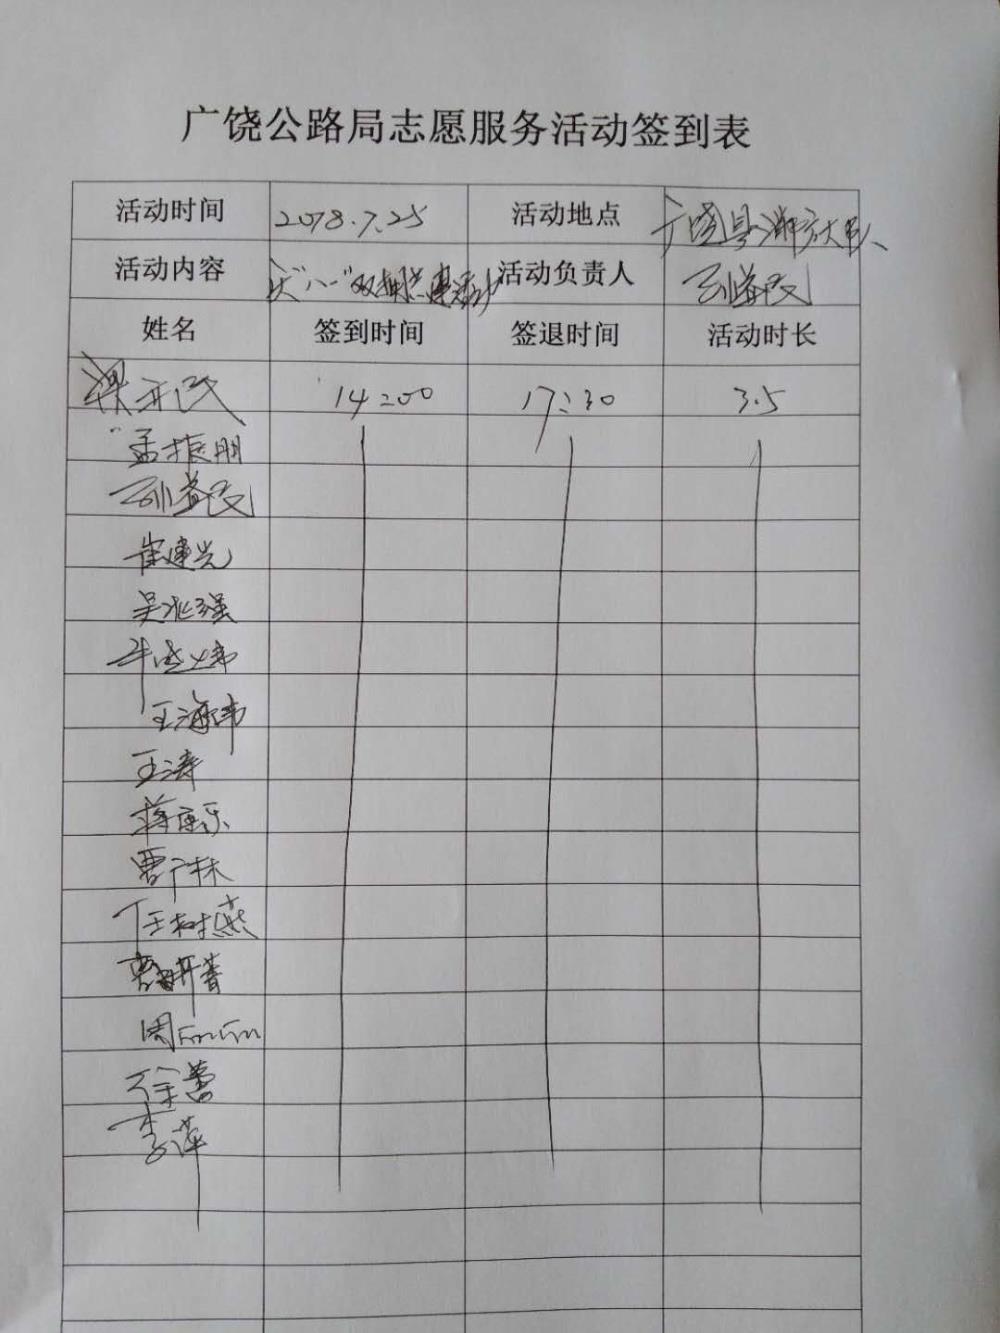 广饶公路局志愿服务活动签到表
活动时间 2018.7.25 活动地点 广饶县消防大队
活动内容 庆"八一"双拥共建活动 活动负责人 孙益民
姓名 签到时间 签退时间 活动时长
开民 14:00 17:30 3.5
孟振朋
孙益民
崔建光
吴兆强
王海伟
王涛
蒋康乐
曹广林
任树燕
周丽丽
徐蕾
李萍